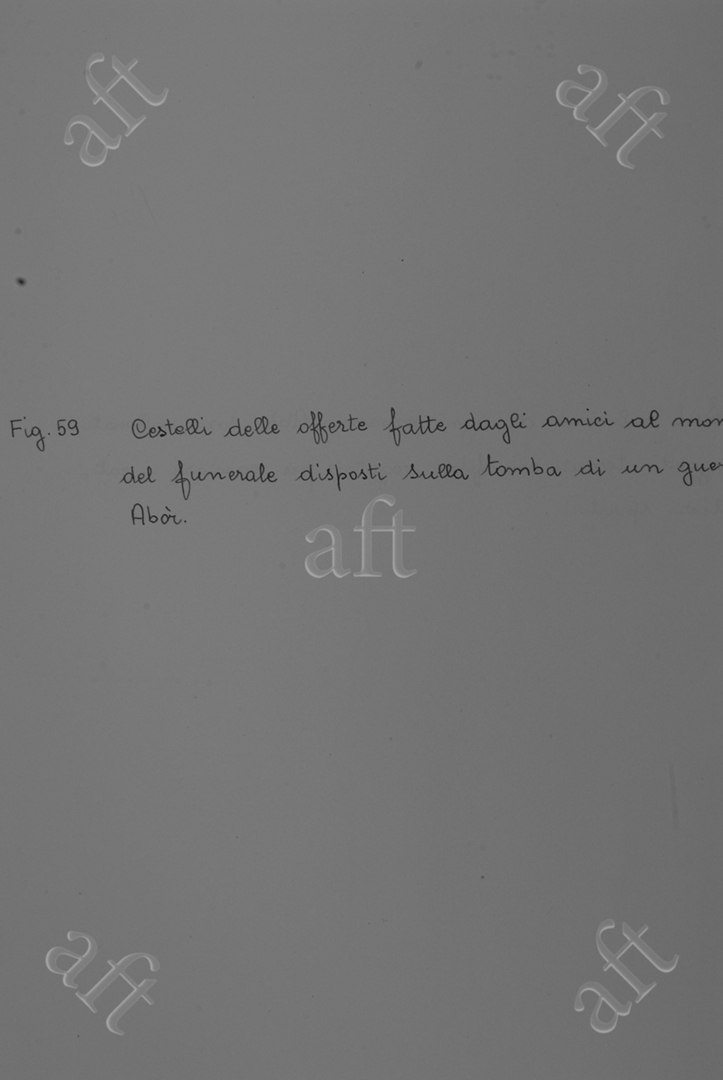 aft
aft
Fig. 59 Cestelli delle offerte fatte dagli amici al mom
del funerale disposti sulla tomba di un guer
Abòr.
aft
aft
aft